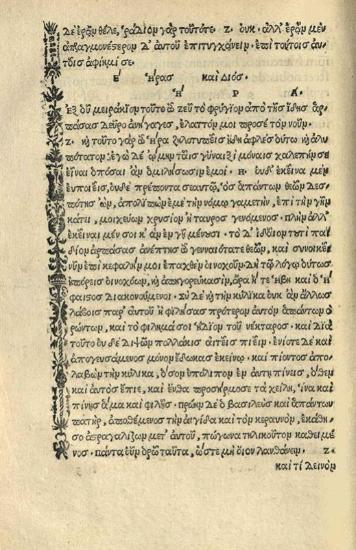 δε ἐρᾷν θέλε, ῥᾴδιον γὰρ τοῦτό γε. Ζ. οὐκ. ἀλλ' ἐρᾷν μὲν
ἀπραγμονέστερον δ' αὐτοῦ ἐπιτυγχάνειν. ἐπὶ τούτοις αὐ
τοῖς ἀφίημί σε.
Ε Ἥρας καὶ Διός.
Ἥ Ρ Α.
Ἐξ οὗ μειράκιον τοῦτο ὦ ζεῦ τὸ φρύγιον ἀπὸ τῆς ἴδης ἁρ
πάσας δεῦρο ἀνήγαγες, ἔλαττόν μοι προσέχεις τὸν νοῦν.
Ζ. κỳ τοῦτο γὰρ ὦ ἥρα ζηλοτυπεῖς ἤδη ἀφελὲς οὕτω κỳ ἀλυ
πότατον; ἐγὼ δὲ ᾤμην ταῖς γυναιξὶ μόναις χαλεπήν σε
εἶναι ὁπόσαι ἂν ὁμιλήσωσί μοι. Η. οὐδ' ἐκεῖνα μὲν
εὖ ποιεῖς, οὐδὲ πρέποντα σεαυτῷ, ὃς ἁπάντων θεῶν δεσ
πότης ὢν, ἀπολιπὼν ἐμὲ τὴν νόμῳ γαμετὴν, ἐπὶ τὴν γῆν
κάτει, μοιχεύων χρυσίον ἢ ταῦρος γενόμενος. πλὴν ἀλλ'
ἐκεῖναι μέν σοι κἂν ἐν γῇ μένουσι. τὸ δ' ἰδαῖον τουτὶ παι
δίον ἁρπάσας ἀνέπτης ὦ γενναιότατε θεῶν, καὶ συνοικεῖ
νῦν ἐπὶ κεφαλήν μοι ἐπαχθὲν οἰνοχοοῦν δὴ τῷ λόγῳ. οὕτως
ἠπόρεις οἰνοχόων, κỳ ἀπηγορεύκασιν, ἄρα ἥ τε ἥβη καὶ ὁ ἥ
φαιστος διακονούμενοι. σὺ δὲ κỳ τὴν κύλικα οὐκ ἂν ἄλλως
λάβοις παρ' αὐτοῦ ἢ φιλήσας πρότερον αὐτὸν ἁπάντων ὁ
ρώντων, καὶ τὸ φίλημά σοι ἥδιον τοῦ νέκταρος. καὶ διὰ
τοῦτο οὐδὲ διψῶν πολλάκις αἰτεῖς πιεῖν. ἐνίοτε δὲ καὶ
ἀπογευσάμενος μόνον ἔδωκας ἐκείνῳ. καὶ πιόντος ἀπο
λαβὼν τὴν κύλικα, ὅσον ὑπόλοιπον ἐν αὐτῇ πίνεις, ὅθεν
καὶ αὐτὸς ἔπιε, καὶ ἔνθα προσήρμοσε τὰ χείλη, ἵνα καὶ
πίνῃς ἅμα καὶ φιλῇς. πρῴην δὲ ὁ βασιλεὺς καὶ ἁπάντων
πατὴρ, ἀποθέμενος τὴν αἰγίδα καὶ τὸν κεραυνὸν, ἐκάθη
σο ἀστραγαλίζων μετ' αὐτοῦ, πώγωνα τηλικοῦτον καθειμέ
νος. πάντα οὖν ὁρῶ ταῦτα, ὥστε μὴ οἴου λανθάνειν. Ζ.
καὶ τί δεινὸν